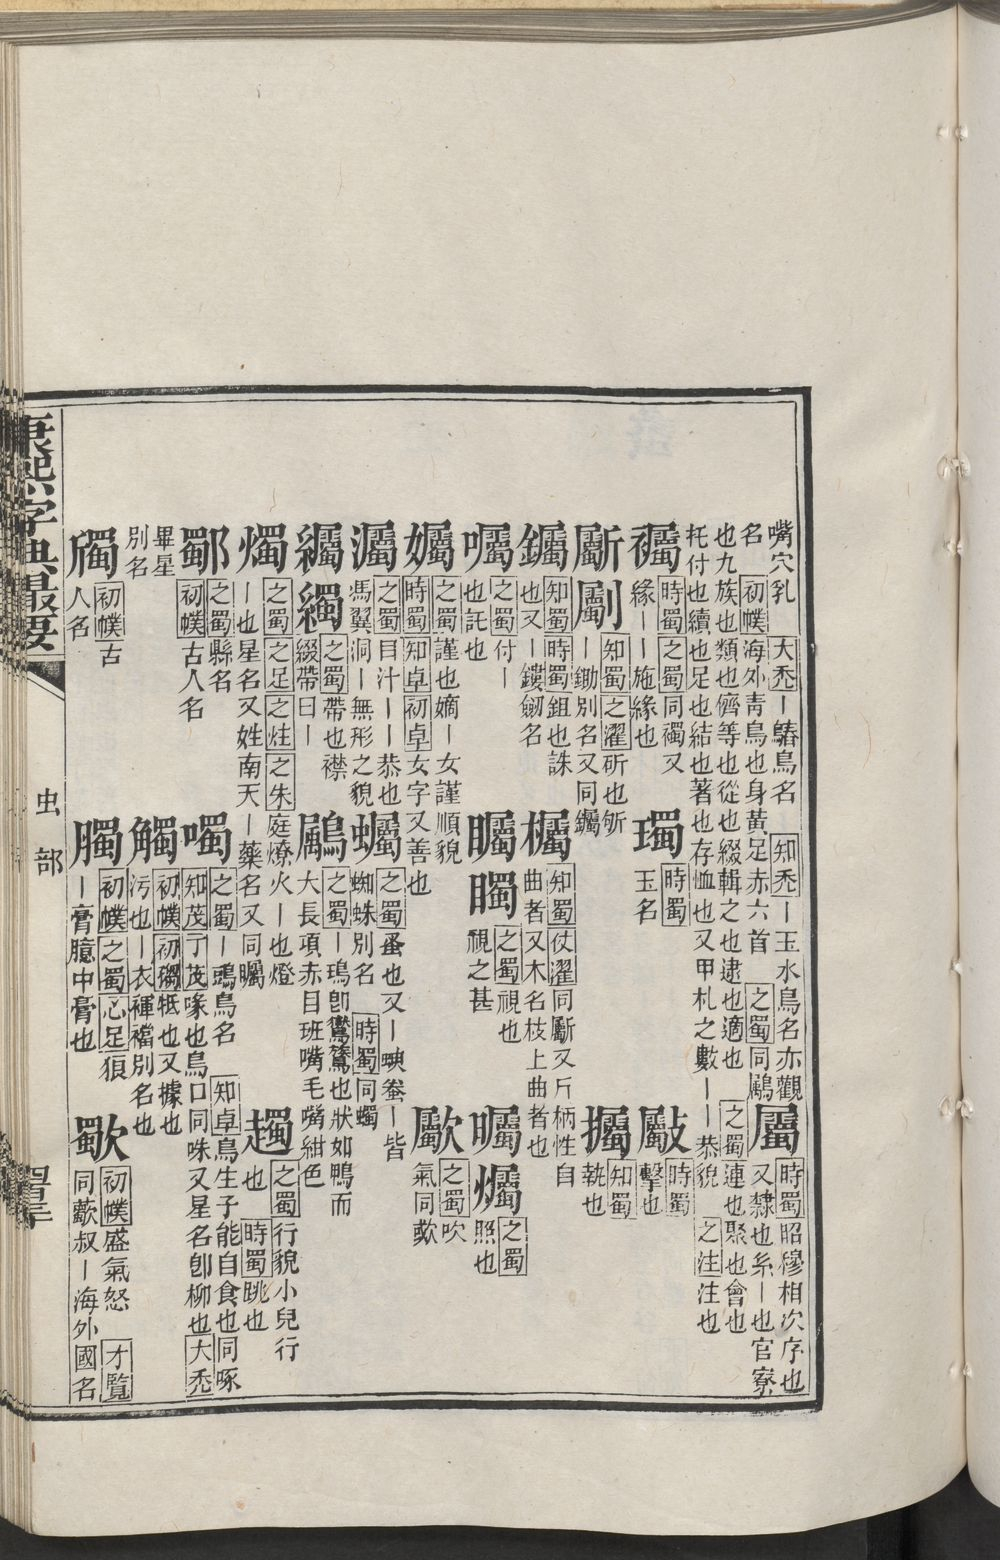 嘴穴乳 大禿丨鶞鳥名 知禿丨玉水鳥名亦觀
名 初幞海外靑鳥也身黃足赤六首 之蜀同鸀
屬 時蜀昭穆相次序也
又隸也系丨也官寮
也九族也類也儕等也從也綴輯之也逮也適也 之蜀連也聚也會也
托付也續也足也結也著也存恤也又甲札之數丨丨恭貌 之注注也
襡 時蜀之蜀同襡又
緣丨丨施緣也
璃 時蜀
玉名
斀 時蜀
擊也
斸劚 知蜀之濯斫也斪
丨鋤別名又同钃
攌 知蜀
執也
钃 知蜀時蜀鉏也誅
也又丨鏤劒名
欘 知蜀仗濯同斸又斤柄性自
曲者又木名枝上曲者也
囑 之蜀付丨
也託也
矚䫳 之蜀視也
視之甚
曯爥 之蜀
照也
孎 之蜀謹也嫡丨女謹順貌
時蜀知卓初卓女字又善也
歜 之蜀吹
氣同歜
灟 之蜀目汁丨丨恭也
馮翼洞丨無形之貌
蠾 之蜀蚤也又丨蝡蚕丨皆
蜘蛛別名 時蜀同蠋
纗繘 之蜀帶也襟
綴帶曰丨
鸀 之蜀丨瑦卽鸑鷟也狀如鴨而
大長項赤目班嘴毛嘴紺色
燭 之蜀之足之炷之朱庭燎火丨也燈
丨也星名又姓南天丨藥名又同矚
趨 之蜀行貌小兒行
也 時蜀跳也
鄐 之蜀縣名
初幞古人名
噣 之蜀丨鴟鳥名 知卓鳥生子能自食也同啄
知茂丁茂喙也鳥口同咮又星名卽柳也大禿
畢星
別名
觸 初幞初觸牴也又據也
污也丨衣褌襠別名也
斶 初幞古
人名
臅 初幞之蜀心足狼
丨膏臆中膏也
歜 初幞盛氣怒 才覽
同歜叔丨海外國名
康熙字典最要
虫部